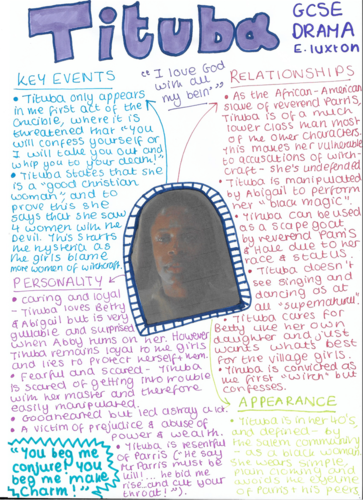 Tituba
GCSE
DRAMA
E. luxton
KEY EVENTS
• Tituba only appears
in the first act of the
Crucible, where it is
threatened that "you
will confess yourself or
I will take you out and
whip you to your death!"
• Tituba states that she
is a "good christian
woman", and to
prove this she
says that she saw
4 women with the
Devil. This starts
the hysteria as
the girls blame
more women of witchcraft.
"I love God
with all
my bein'"
RELATIONSHIPS
• As the African-American
slave of reverend Parris,
Tituba is of a much
lower class than most
of the other characters.
This makes her vulnerable
to accusations of witch-
craft - she's undefended
• Tituba is manipulated
by Abigail to perform
her "black magic".
• Tituba can be used
as a scape goat
by reverend Parris
& Hale due to her
race & status.
• Tituba doesn't
see singing and
dancing as at
all "supernatural"
• Tituba cares for
Betty like her own
daughter and just
wants what's best
for the village girls.
• Tituba is convicted as
the first "witch" but
confesses.
PERSONALITY
• caring and loyal
- Tituba loves Betty
& Abigail but is very
gullable and surprised
when Abby turns on her. However
Tituba remains loyal to the girls
and lies to protect herself & them.
• Fearful and scared - Tituba
is scared of getting into trouble
with her master and therefore
easily manipulated.
• Goodhearted but led astray
• A victim of prejudice & abuse of
power & wealth.
• Tituba is resentful
of Parris ("He say
Mr Parris must be
kill! ... he bid me
rise and cut your
throat!").
"You beg me
conjure! you
beg me make
charm!"
APPEARANCE
• Tituba is in her 40's,
as a black woman,
she wears simple,